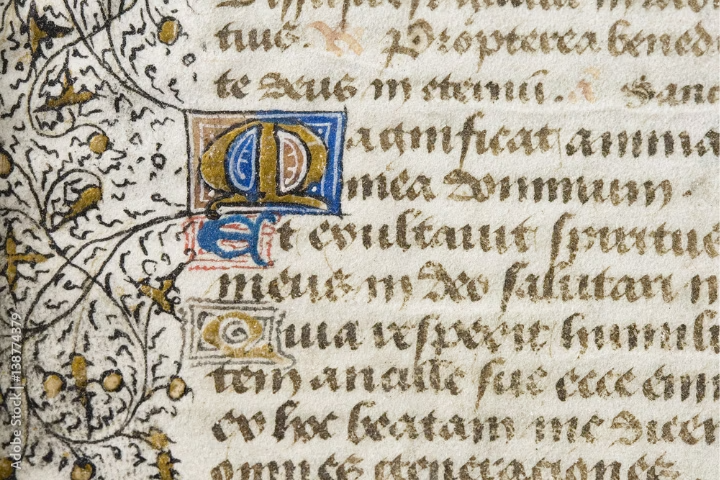 tius. Propterea bened
te deus in eternū. Sanc
Magnificat anima
mea dominum.
Et exultauit spiritus
meus in deo salutari m
Quia respexit humili
tem ancille sue ecce enim
ex hoc beatam me dicen
omnes generaciones.
Adobe Stock | #138774379